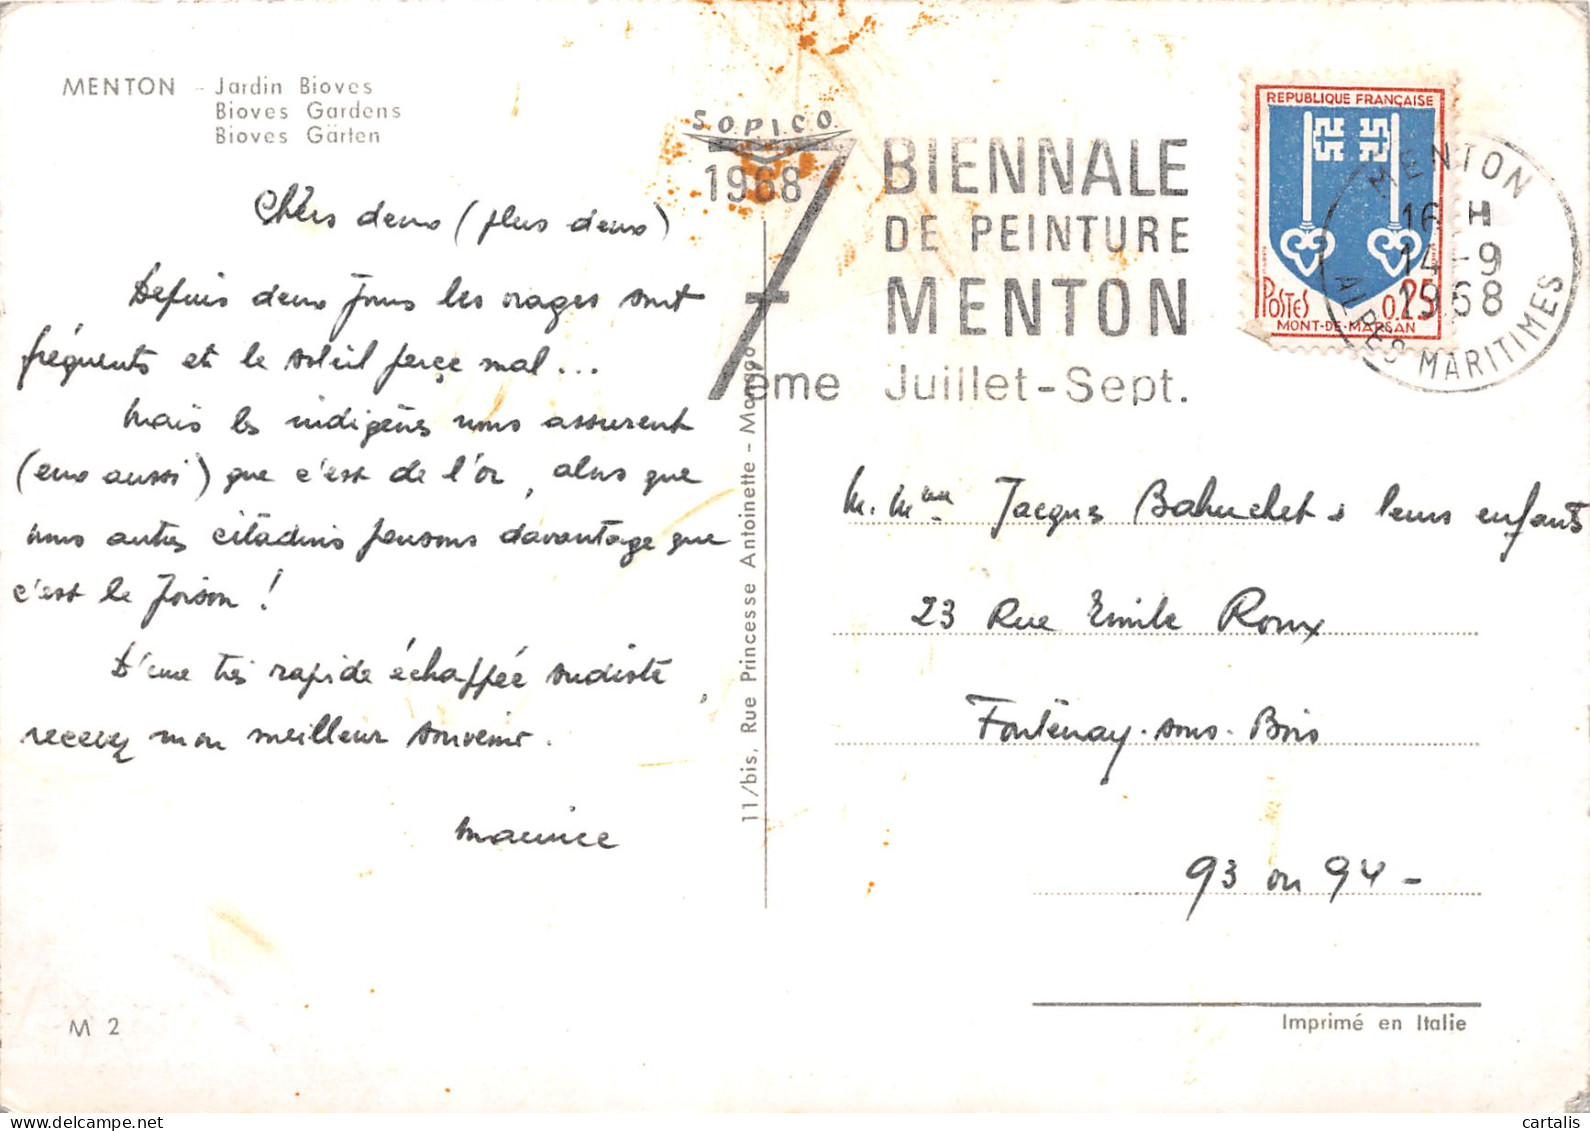 MENTON - Jardin Bioves
Bioves Gardens
Bioves Gärten
Chers deux (plus deux)
Depuis deux jours les orages sont
fréquents et le soleil perce mal...
Mais les indigènes nous assurent
(eux aussi) que c'est de l'or, alors que
nous autres citadins pensons davantage que
c'est le poison !
D'une très rapide échappée sudiste,
recevez mon meilleur souvenir.
Maurice
M 2
11/bis, Rue Princesse Antoinette - Monaco
SOPICO
1968
7ème
BIENNALE
DE PEINTURE
MENTON
Juillet-Sept.
REPUBLIQUE FRANÇAISE
POSTES 0.25
MONT-DE-MARSAN
MENTON
16 H
14-9
1968
ALPES MARITIMES
M. Mme Jacques Bahuchet & leurs enfants
23 Rue Emile Roux
Fontenay-sous-Bois
93 ou 94-
Imprimé en Italie
cartalis